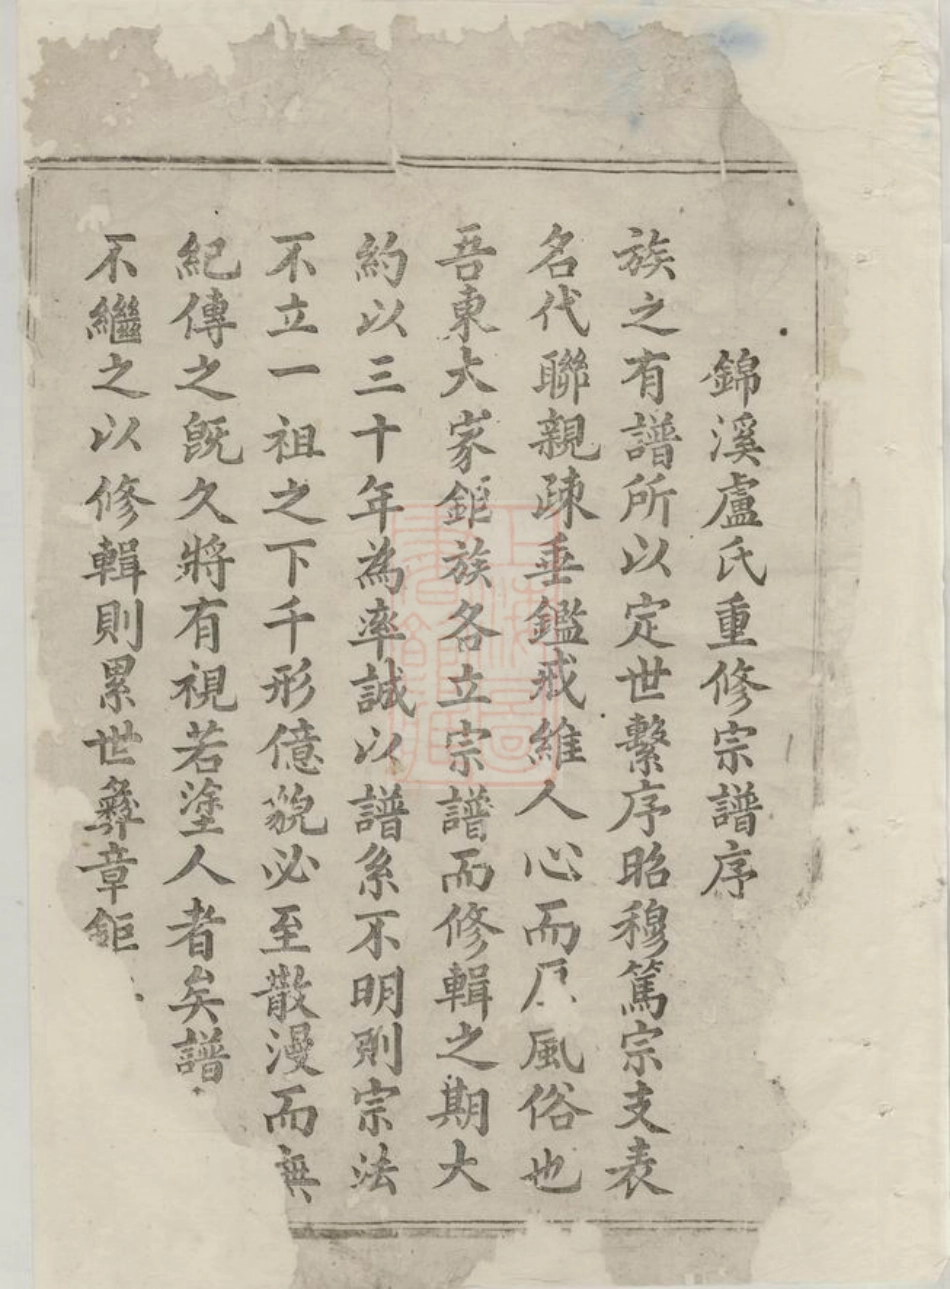 錦溪盧氏重修宗譜序
族之有譜所以定世繫序昭穆篤宗支表
名代聯親疎垂鑑戒維人心而風俗也
吾東大家鉅族各立宗譜而修輯之期大
約以三十年為率誠以譜系不明則宗法
不立一祖之下千形億貌必至散漫而無
紀傳之旣久將有視若塗人者矣譜
不繼之以修輯則累世彝章鉅